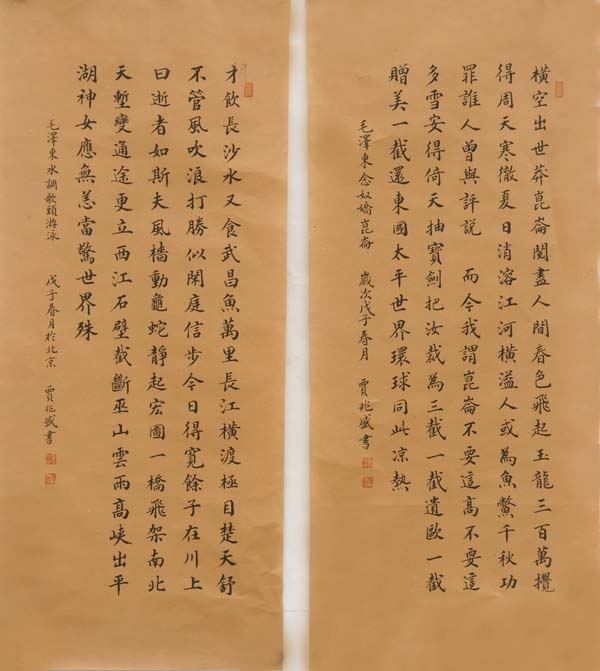 橫空出世莽崑崙閱盡人間春色飛起玉龍三百萬攪
得周天寒徹夏日消溶江河橫溢人或為魚鱉千秋功
罪誰人曾與評說 而今我謂崑崙不要這高不要這
多雪安得倚天抽寶劍把汝裁為三截一截遺歐一截
贈美一截還東國太平世界環球同此凉熱
毛澤東念奴嬌崑崙 歲次戊子春月 賈兆盛書
才飲長沙水又食武昌魚萬里長江橫渡極目楚天舒
不管風吹浪打勝似閑庭信步今日得寬餘子在川上
曰逝者如斯夫風檣動龜蛇靜起宏圖一橋飛架南北
天塹變通途更立西江石壁截斷巫山雲雨高峽出平
湖神女應無恙當驚世界殊
毛澤東水調歌頭游泳 戊子春月於北京 賈兆盛書